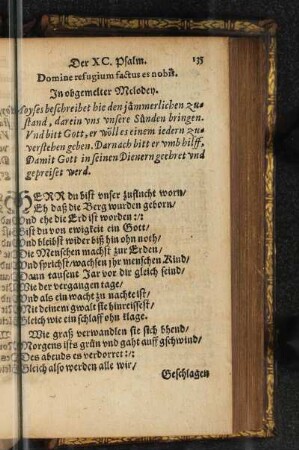 Der XC. Psalm. 135
Domine refugium factus es nobis.
In obgemelter Melodey.
Moyses beschreibet hie den jämmerlichen zu-
stand, darein vns vnsere Sünden bringen.
Vnd bitt Gott, er wöll es einem iedern zu-
verstehen geben. Darnach bitt er vmb hilff,
Damit Gott in seinen Dienern geehret vnd
gepreiset werd.
HERR du bist vnser zuflucht worn/
Eh daß die Berg wurden geborn/
Vnd ehe die Erd ist worden :/:
Bist du von ewigkeit ein Gott/
Vnd bleibst wider biß hin ohn noth/
Die Menschen machst zur Erden/
Vnd sprichst/ wachsen jhr menschen Kind/
Dann tausent Jar vor dir gleich seind/
Wie der vergangen tage/
Vnd als ein wacht zu nachte ist/
Mit deinem gwalt sie hinreissest/
Gleich wie ein schlaff ohn klage.
Wie graß verwandlen sie sich bhend/
Morgens ists grün vnd gaht auff gschwind/
Des abends es verdorret :/:
Gleich also werden alle wir/
Geschlagen